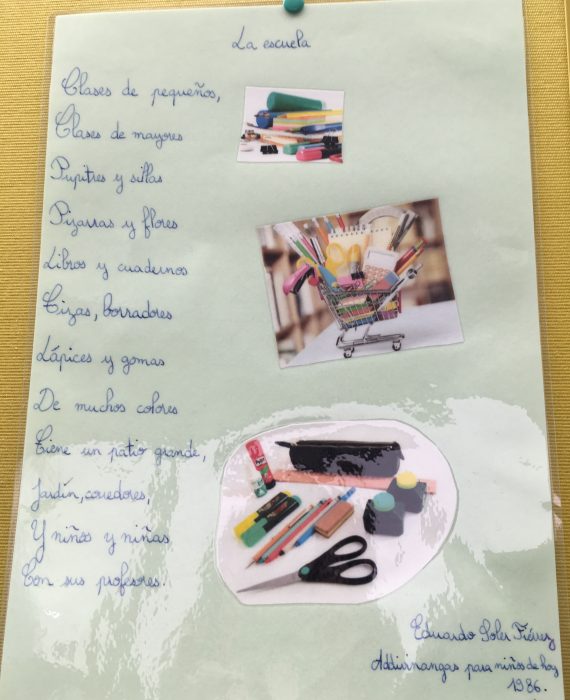 La escuela
Clases de pequeños,
Clases de mayores
Pupitres y sillas
Pizarras y flores
Libros y cuadernos
Tizas, borradores
Lápices y gomas
De muchos colores
Tiene un patio grande,
Jardín, corredores,
Y niños y niñas
Con sus profesores.
Eduardo Soler Fiérez
Addivinangas para niños de hoy
1986.